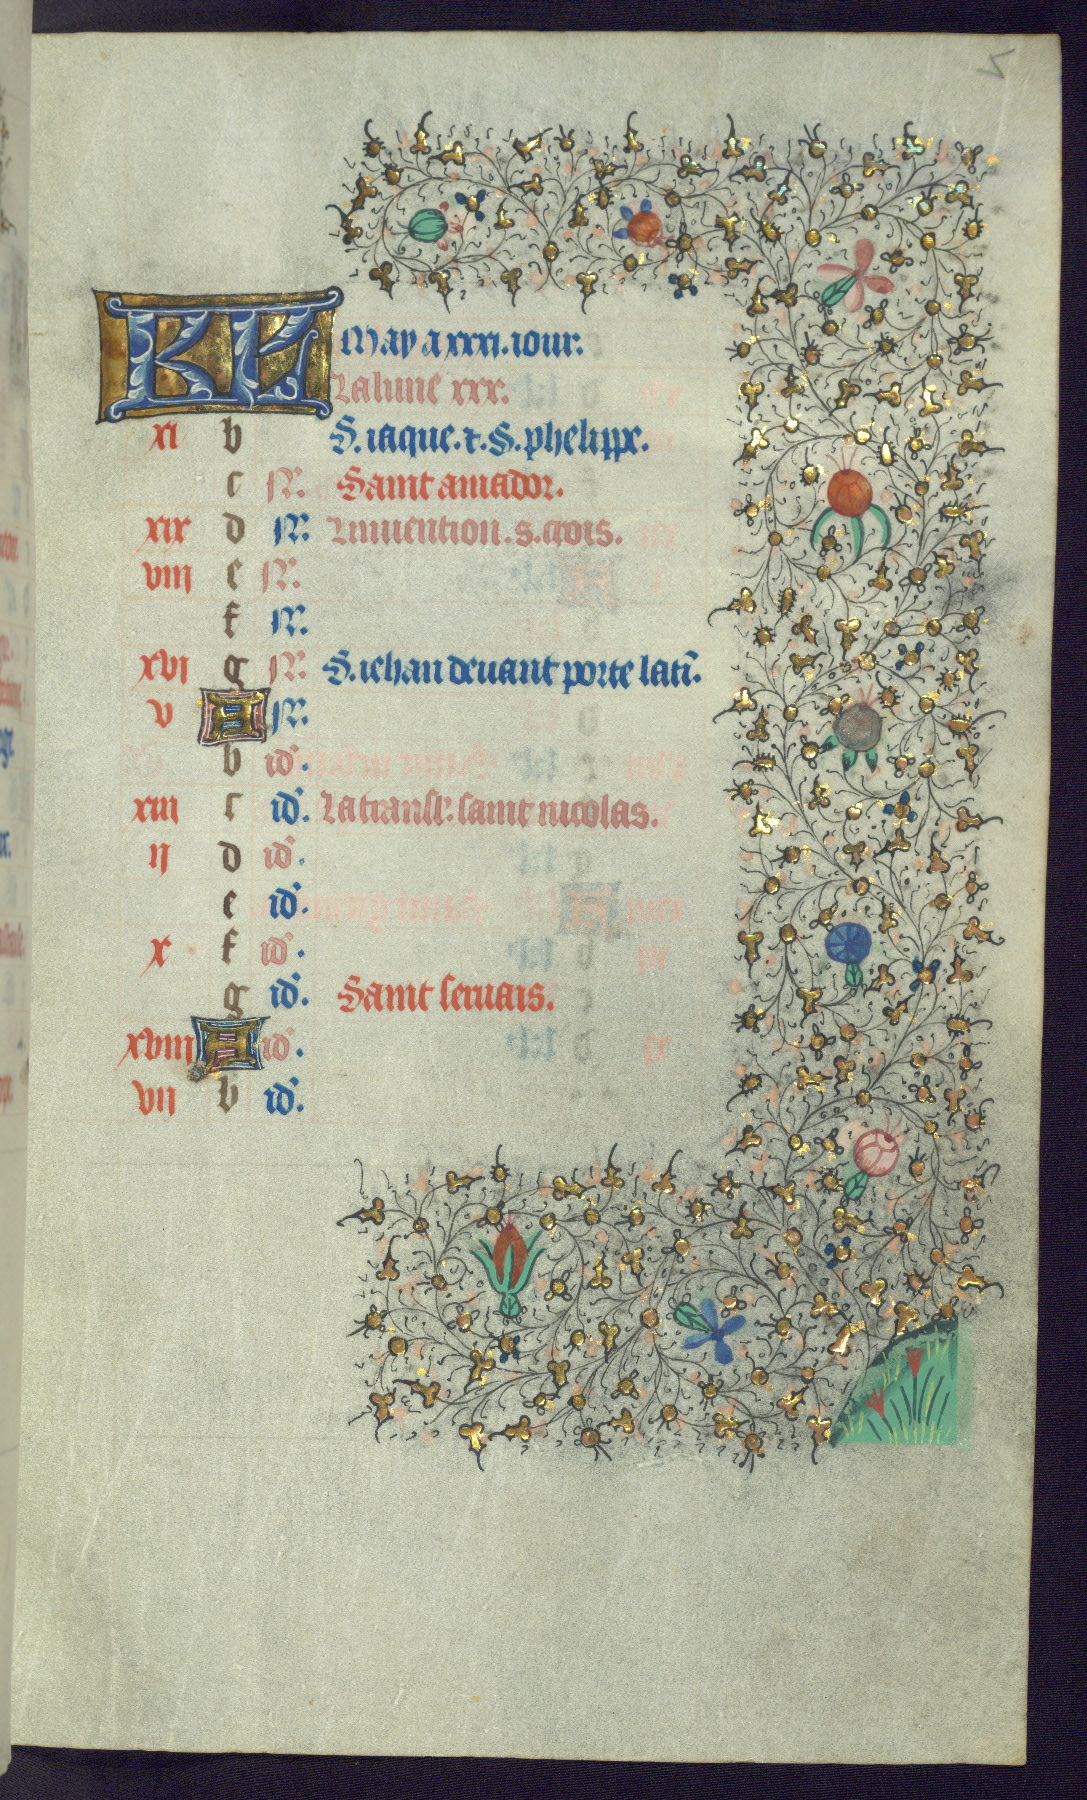 5
KL May a xxxi. iour.
La lune xxx.
xi b S. iaque. τ. S. phelippe.
c N. Saint amador.
xix d N. Linuention. s. crois.
viii e N.
f N.
xvi g N. S. iehan deuant porte latĩ.
v A N.
b id'.
xiii c id'. La transl'. saint nicolas.
ii d id'.
e id'.
x f id'.
g id'. Saint seruais.
xviii A id'.
vii b id'.